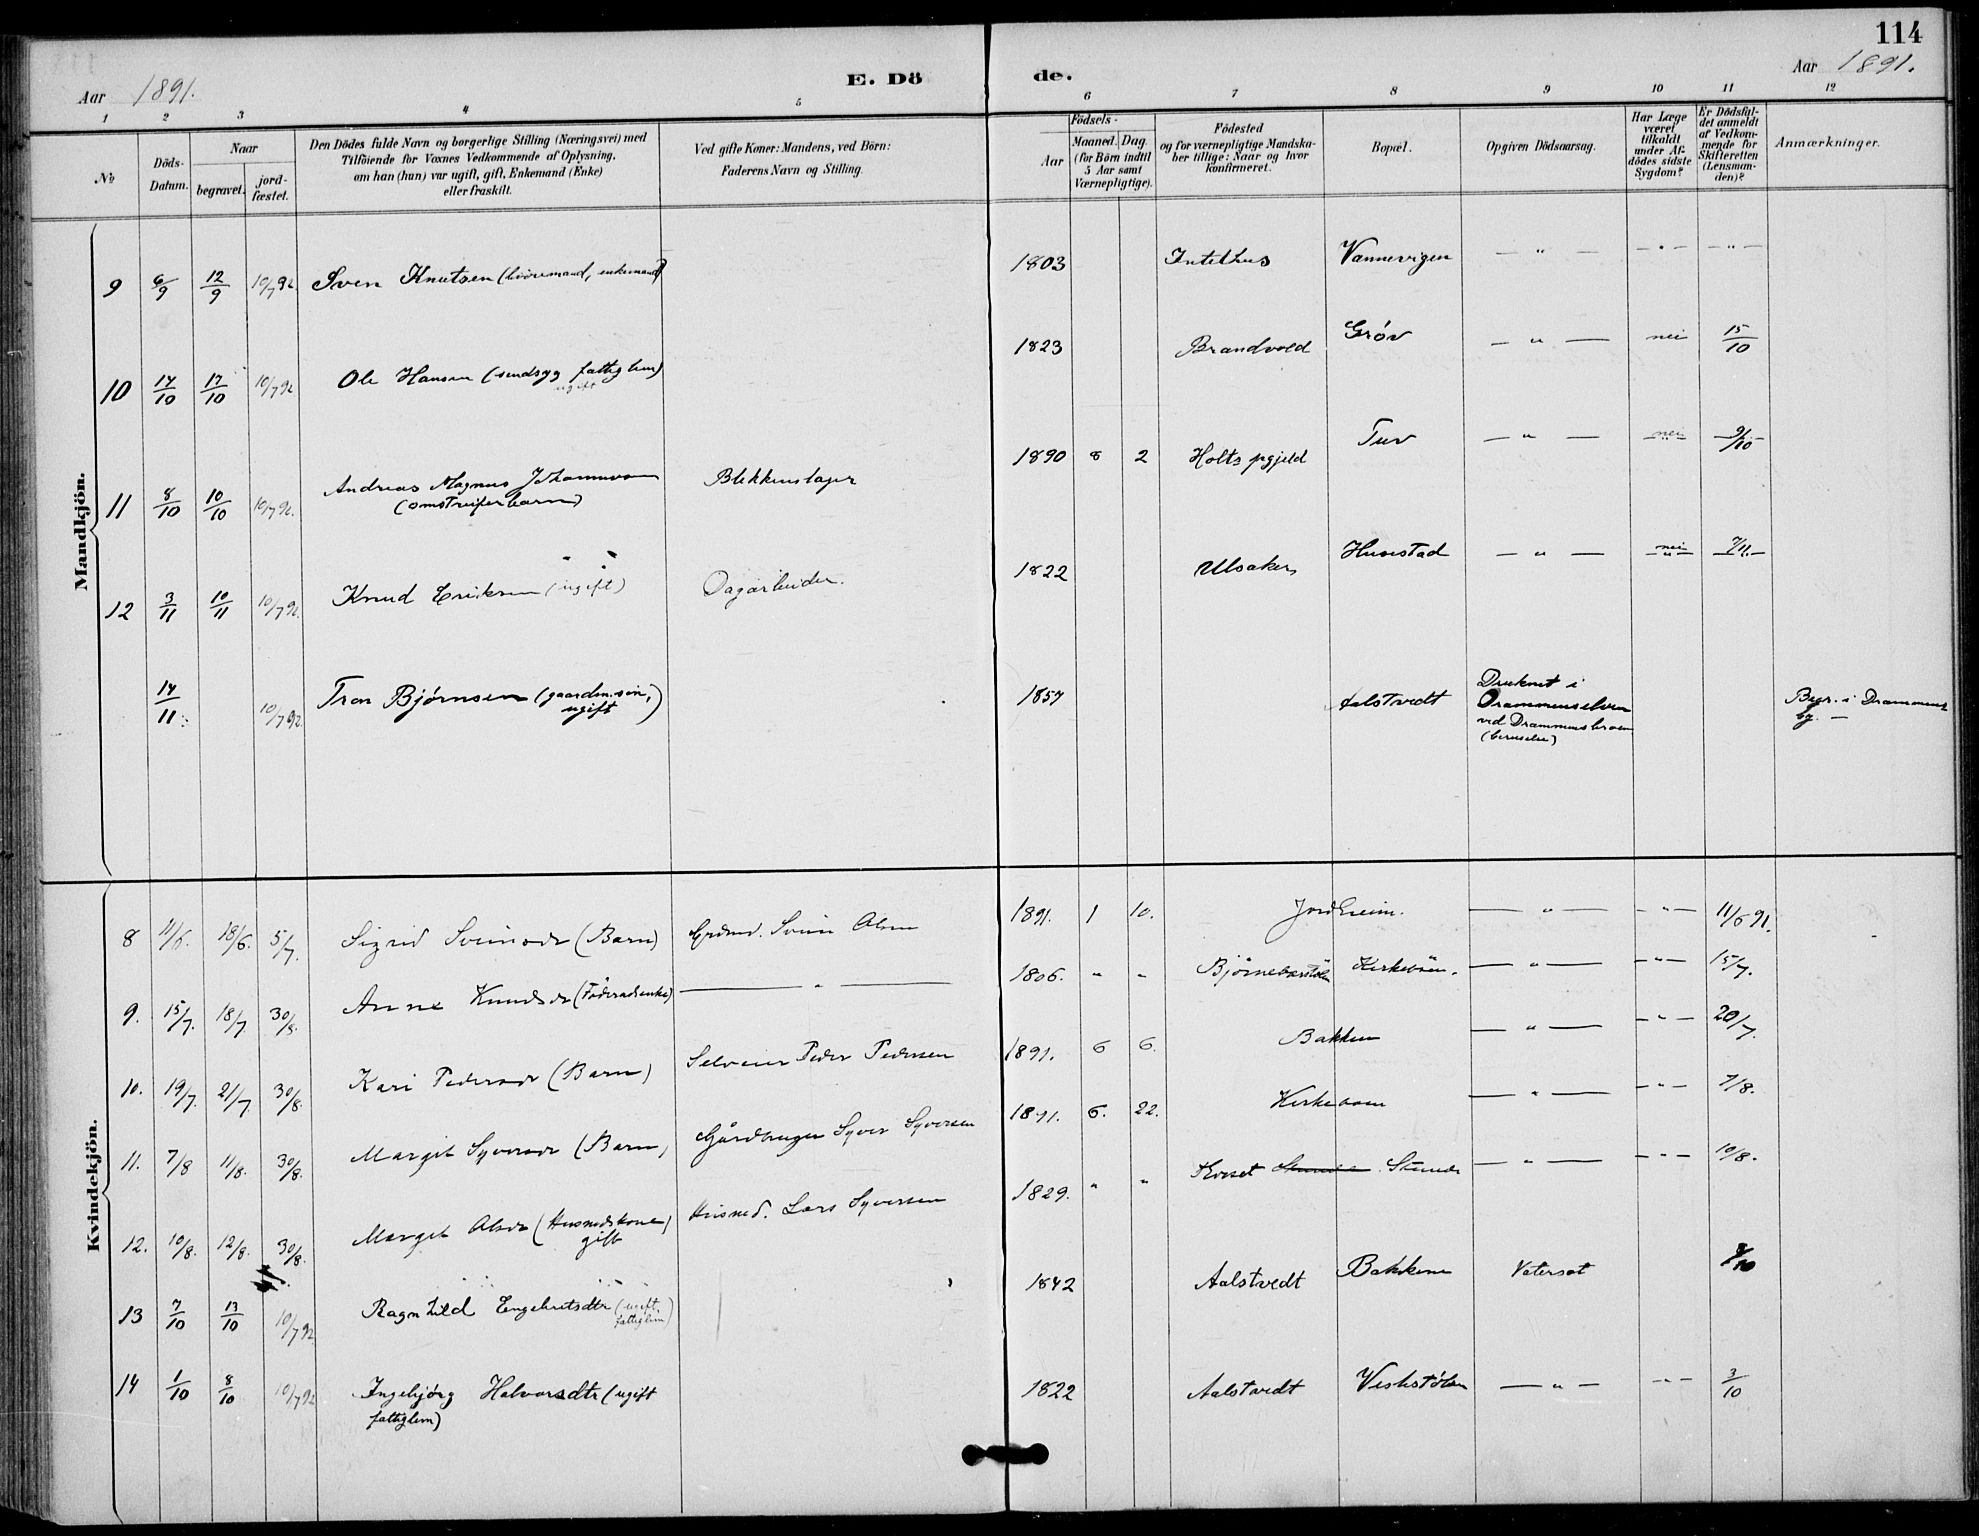 114
Aar 1891. E. Dö
de. Aar 1891.
1 2 3 4 5 6 7 8 9 10 11 12
№
Döds-
Datum.
Naar
begravet.
jord-
fæstet.
Den Dödes fulde Navn og borgerlige Stilling (Næringsvei) med
Tilföiende for Voxnes Vedkommende af Oplysning,
om han (hun) var ugift, gift, Enkemand (Enke)
eller fraskilt.
Ved gifte Koner: Mandens, ved Börn:
Faderens Navn og Stilling.
Födsels-
Aar
Maaned. Dag.
(for Börn indtil
5 Aar samt
Værnepligtige).
Födested
og for værnepligtige Mandska-
ber tillige: Naar og hvor
konfirmeret.
Bopæl.
Opgiven Dödsaarsag.
Har Læge
været
tilkaldt
under Af-
dödes sidste
Sygdom?
Er Dödsfal-
det anmeldt
af Vedkom-
mende for
Skifteretten
(Lensman-
den)?
Anmærkninger.
Mandkjön.
9 6/9 12/9 10/7 92 Sven Knutsen (, enkemand) 1803 Intelhus Vannevigen — " — — " — — " —
10 14/10 17/10 10/7 92 Ole Hansen (sindsyg fattiglem) 1823 Brandvold Grøv — " — nei 15/10
ugift
11 8/10 10/10 10/7 92. Andreas Magnus Johannesen Blikkenslager 1890 8 2 Holts pgjeld Tuv — " — nei 9/10
(omstreiferbarn)
12 3/11 10/11 10/7 92. Knud Eriksen (ugift) Dagarbeider. 1822 Ulsaker Husestad — " — nei 7/11.
14/11 10/7 92 Tron Bjørnsen (gaardm. søn, 1857 Aalstvedt Druknet i
ugift) Drammenselven
ved Drammensbroen
(beruselse)
Begr. i Drammens
by. —
Kvindekjön.
8 11/6. 18/6. 5/7. Sigrid Svensdr (Barn) Grdmd. Svein Olsen 1891. 1 10. Jordheim. — " — — " — 11/6 91.
9. 15/7. 18/7 30/8. Anne Knudsdr (Föderaadsenke) — " — 1806. " " Kirkeböen. — " — — " — 15/7.
10. 19/7. 21/7 30/8. Kari Pedersdr (Barn) Selveier Peder Pedersen 1891. 6 6. Bakken — " — — " — 20/7.
11. 7/8 11/8. 30/8. Margit Syversdr (Barn) Gårdbruger Syver Syversen 1891. 6. 22. Kirkeboen — " — — " — 7/8.
12. 10/8. 12/8. 30/8. Margit Olsdr (Husmdskone) Husmd. Lars Syversen 1829. " " — " — — " — 10/8.
gift
13 7/10 13/10 10/7 92 Ragnhild Engebretsdtr (ugift, 1842 Aalstvedt Bakkene Vatersot 8/10
fattiglem)
14 1/10 8/10 10/7 92 Ingebjörg Halvorsdtr (ugift 1822 Aalstvedt Veslestölen — " — — " — 3/10
fattiglem)